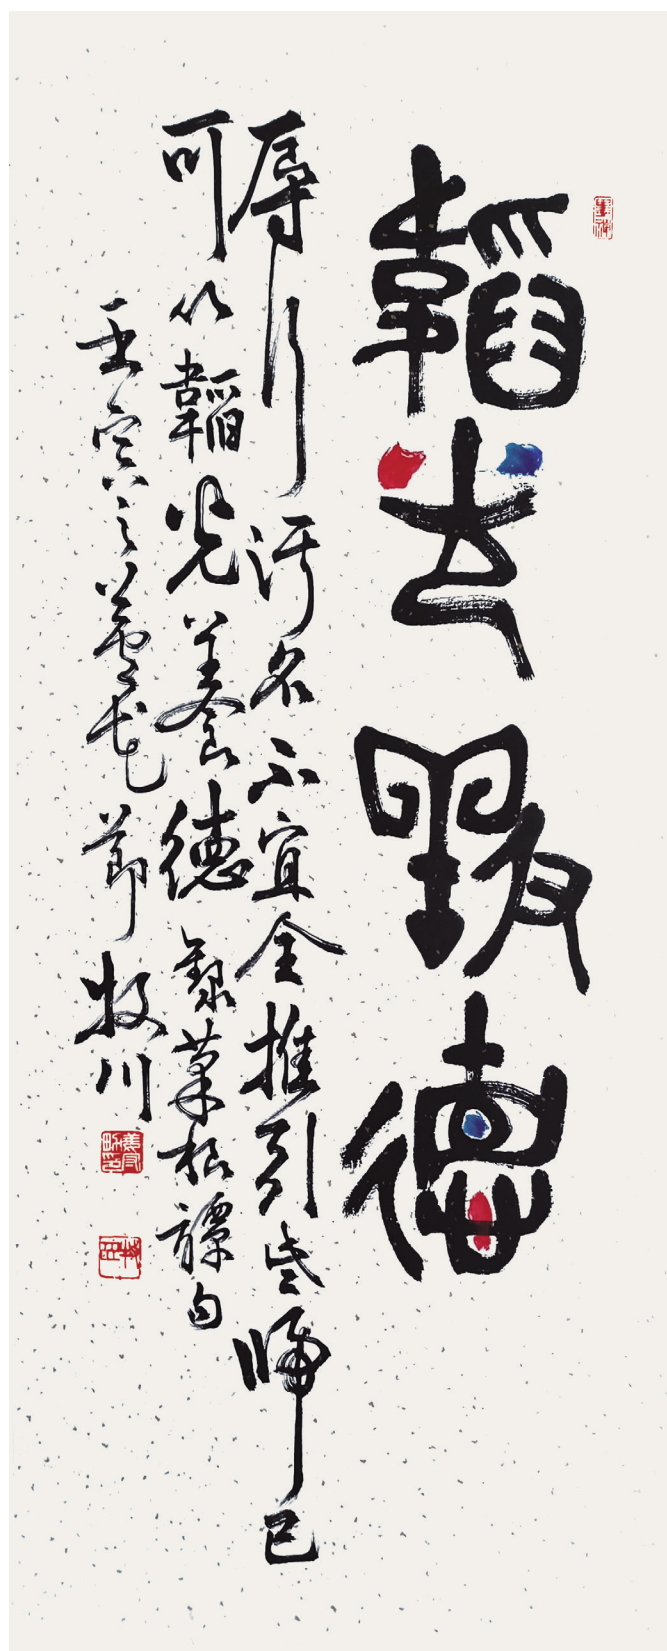 韜光養德
辱行汚名不宜全推引些歸己
可以韜光養德 錄菜根譚句
壬寅之花節 牧川